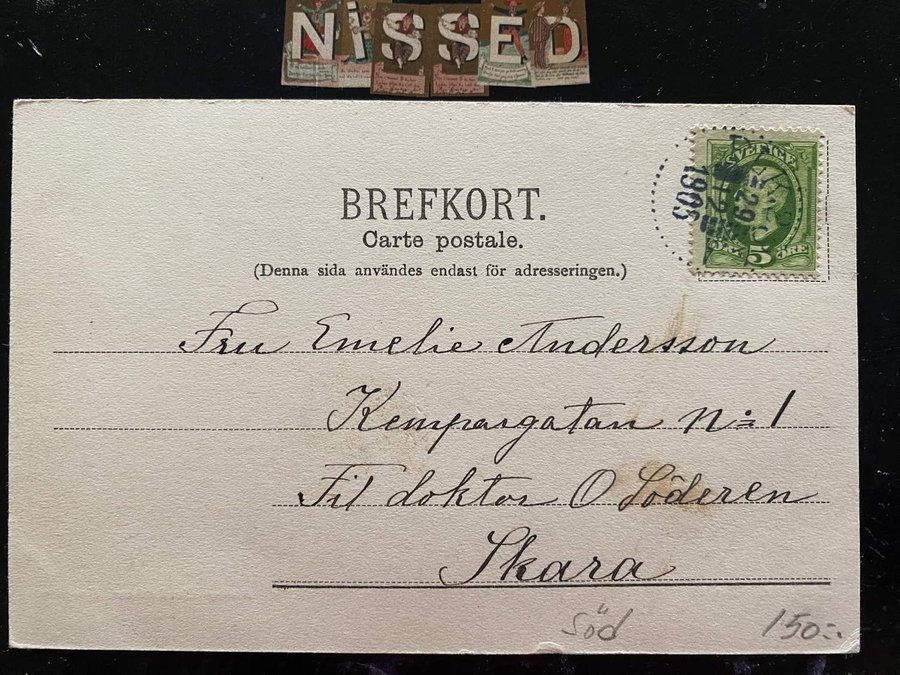 NiSSED
BREFKORT.
Carte postale.
(Denna sida användes endast för adresseringen.)
SVERIGE
5
ÖRE
29
12
1905
Fru Emelie Andersson
Kempargatan No 1
Fil doktor O Söderen
Skara
Söd
150:-